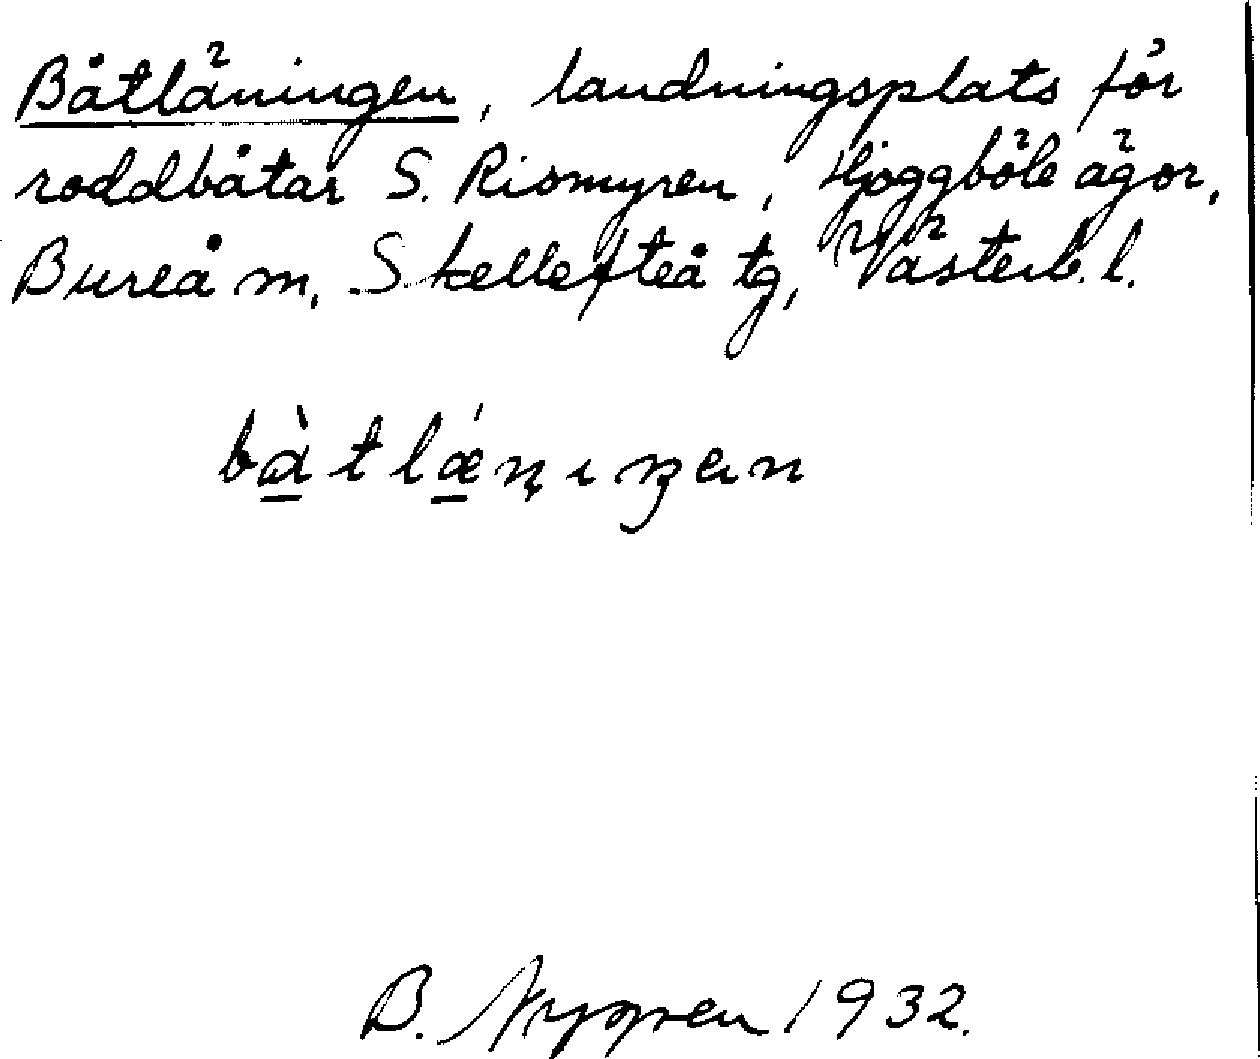 Båtläningen, landningsplats för
roddbåtar S. Rismyren, Hjoggböle ägor,
Bureå m, Skellefteå tg, Västerb. l.
bà̱tlǽ̱n̥ıŋen
B. Nygren 1932.